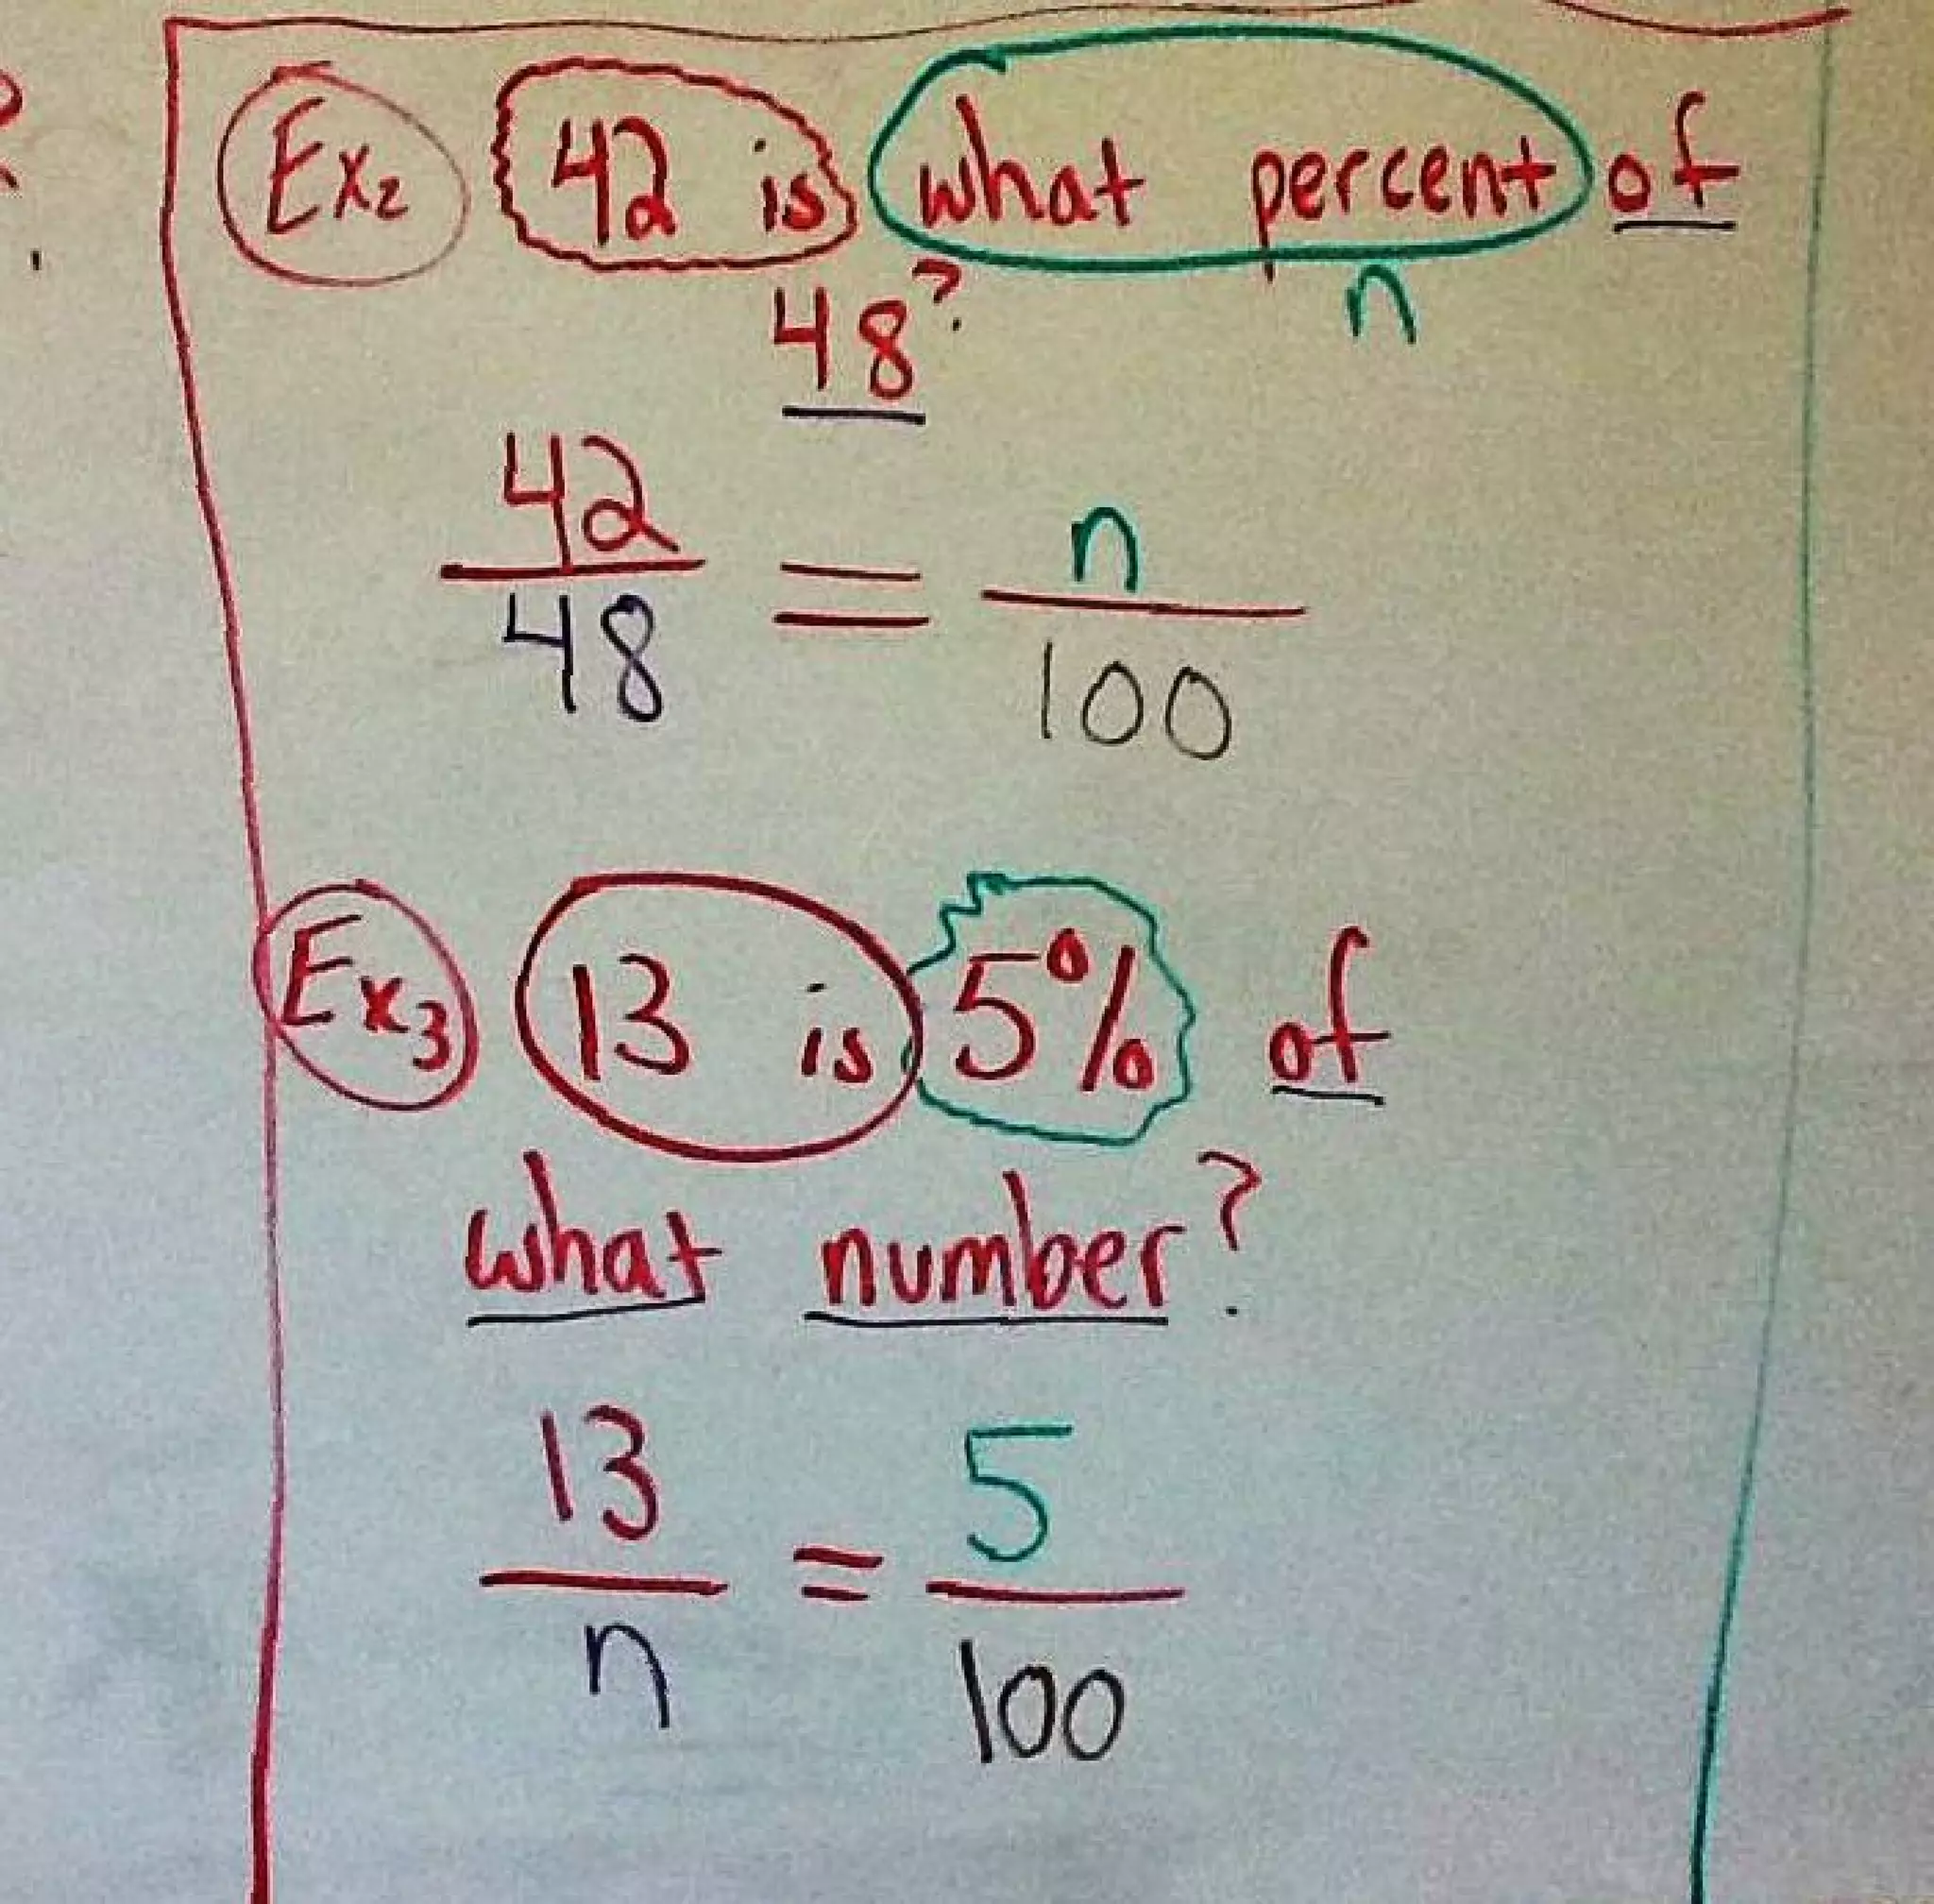 Ex2 42 is what percent of
n
48?
42 = n
48 100
Ex3 13 is 5% of
what number?
13 = 5
n 100